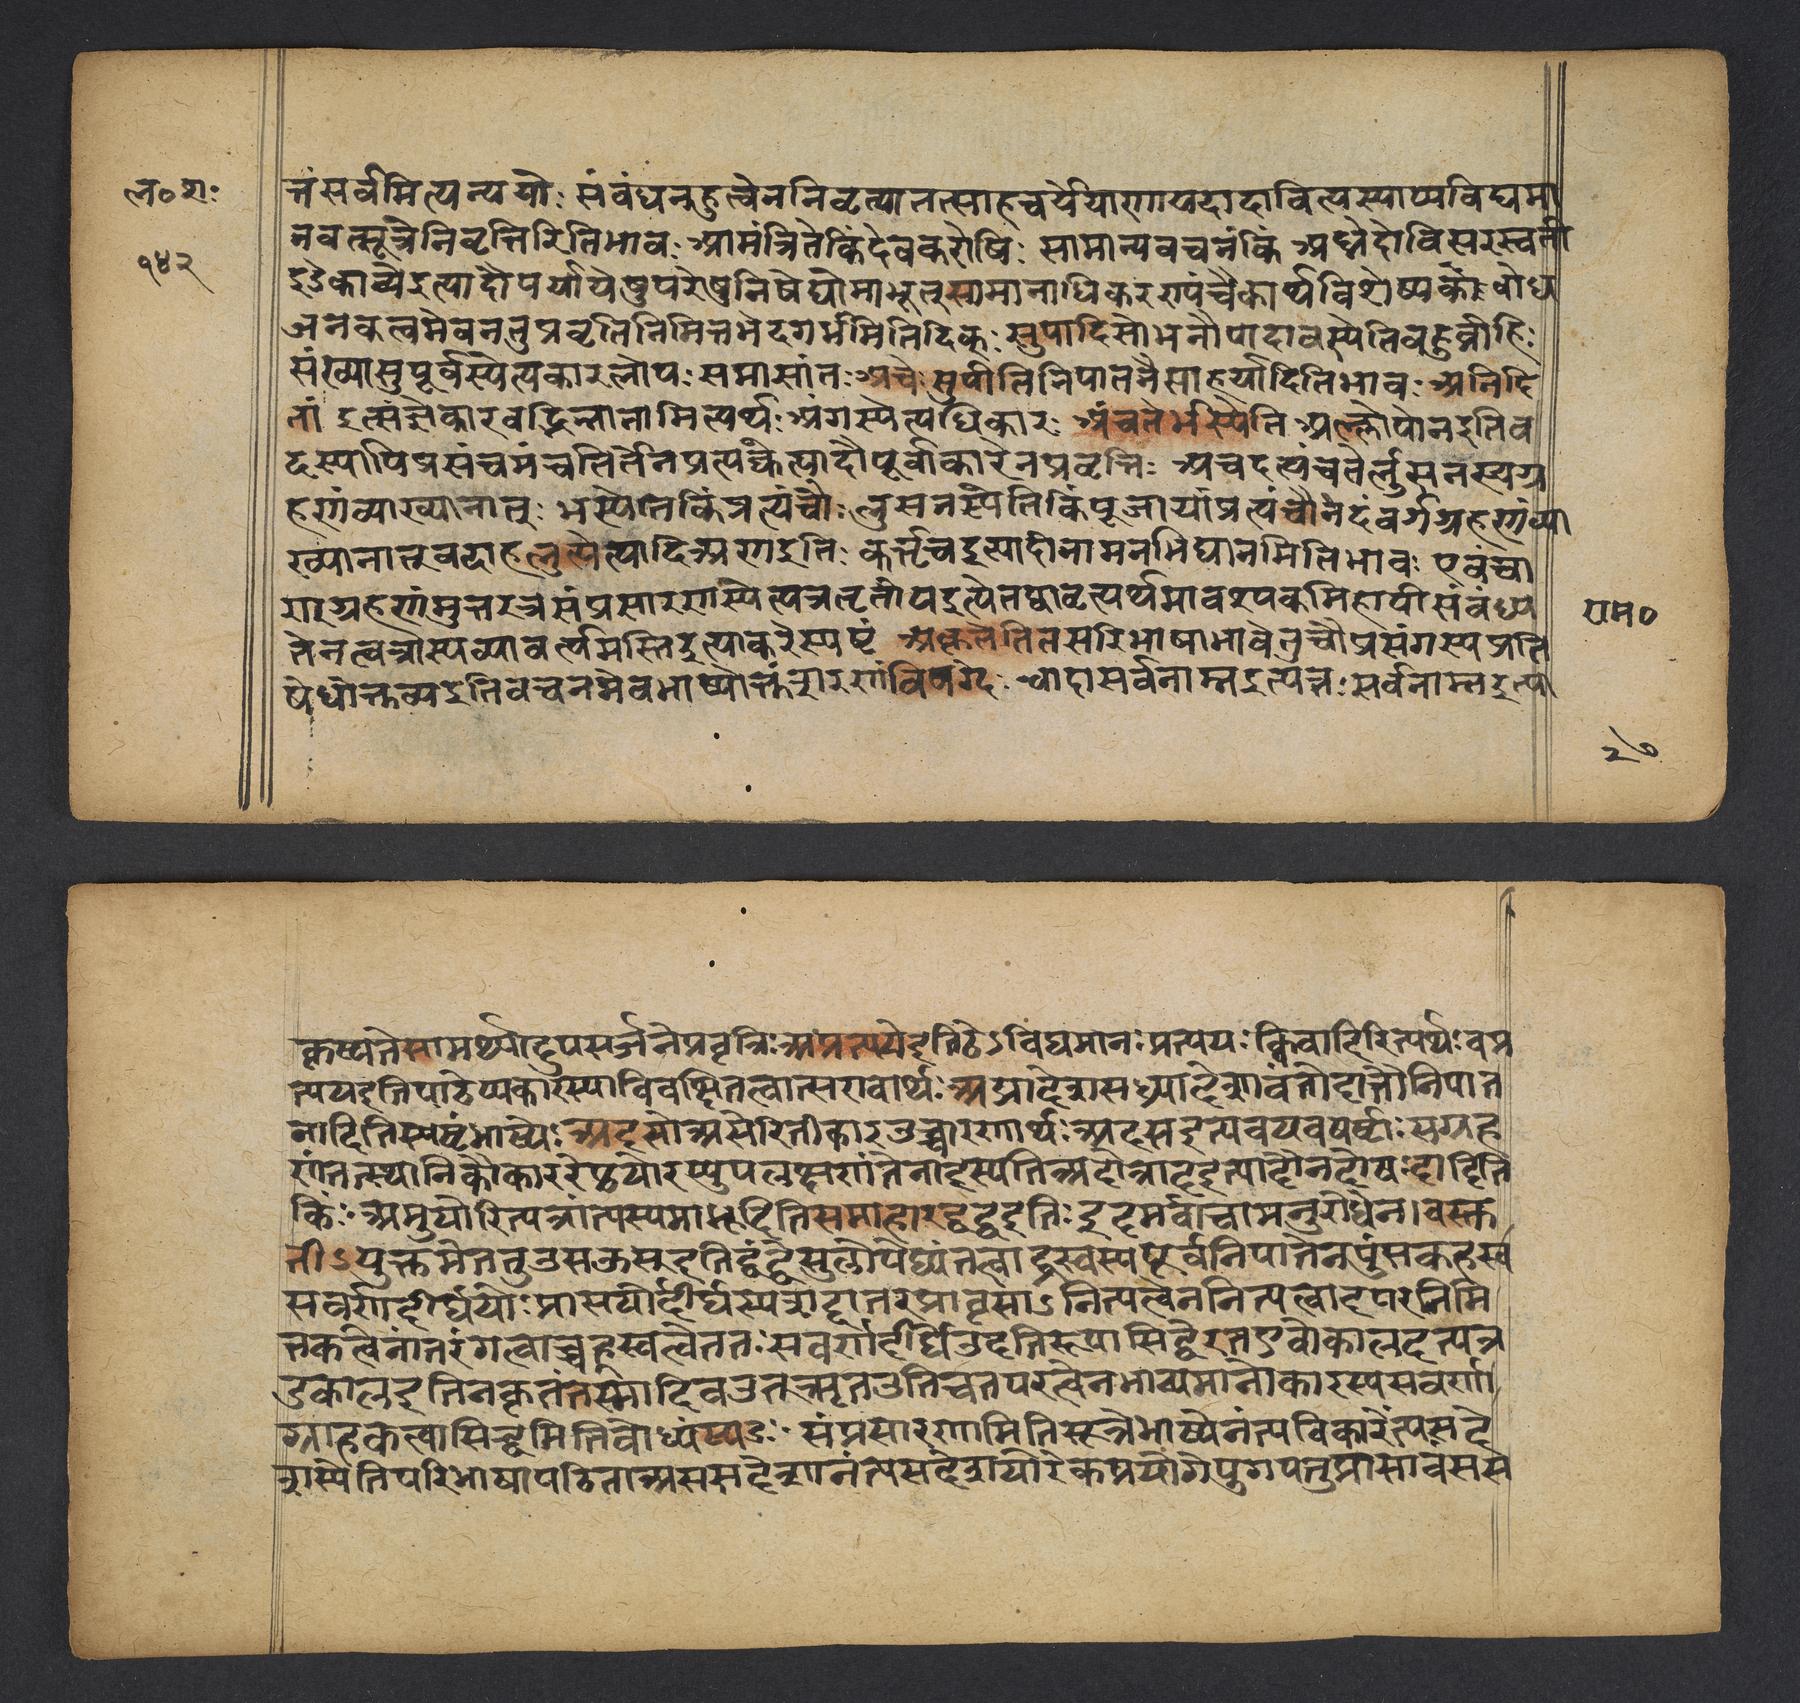 ल०श॰
१४२
त्तं सर्वमित्यन्ययोः संबंधनुहुत्वेननिवृत्यातत्साहचर्येयोरायदादावित्यस्याप्यविद्यमा
नवत्सूत्रेनिवृत्तिरितिभावः आमंत्रितेकिंदेवकरोषि सामान्यवचनंकिं अघ्नेदेविसरस्वती
इडेकाव्येइत्यादौपर्यायेषुपरेषुनिषेधोमाभूत् सामानाधिकरण्यंचैकार्थविशेष्यकबोध
जनकत्वमेवनतुप्रवृत्तिनिमित्तभेदगर्भमितिदिक् सुपादिसोभनौपादावस्येतिबहुव्रीहिः
संख्यासुपूर्वस्येत्यकारलोपः समासांतः अचे सुपीतिनिपातनैसाहर्यादितिभावः अनिदि
तां इत्संज्ञेकारवद्भिन्नानामित्यर्थः अंगस्येत्यधिकारः अंचतेर्भस्येति अल्लोपोनइतिव
दस्यापिप्रसंचमंचतितेनप्रत्यङ्केत्यादौपूर्वाकारेनप्रवृत्तिः अचइत्यंचतेर्लुप्तनस्यग्र
हणंव्याख्यानात् भस्येतिकिंप्रत्यंचौ लुप्तनस्येतिकिंपूजायांप्रत्यंचौनेदंवर्गग्रहणंव्या
ख्यानात् वदाहलुप्तेत्यादिअणइति कर्तृचइत्यादीनामनभिधानमितिभावः एवंचा
णग्रहणंमुत्तरत्रसंप्रसारणस्येत्यत्रतृतीयइत्येतद्व्यावृत्यर्थमावश्यकमिहापीसंबंध्य
तेनत्वत्रास्यव्यावर्त्यमस्तिइत्याकरेस्पष्टं अकृतेतितत्सरिभाषाभावेतुचौप्रसंगस्यप्रति
षेधोक्तव्यइतिवचनमेवभाष्योक्तंशरणंविश्वगेः श्चादासर्वनाम्नइत्यत्र सर्वनाम्नइत्या
राम०
२७
कृष्यतेसामर्थ्यादुपसर्जनेप्रवृत्तिः अप्रत्ययेइतिठेऽविद्यमानः प्रत्ययः क्विबादिरित्यर्थः वप्र
त्ययइतिपाठेप्यकारस्याविवक्षितत्वात्सएवार्थः अद्र्यादेशसध्र्यादेशावंतोदात्तौनिपात
नादितिस्पष्टंभाष्ये अदसोअसेरितीकारउच्चारणार्थः अदसइत्यवयवषष्ठी सग्रह
णंतत्स्थानिकौकाररेफयोरप्युपलक्षणंतेनादस्यतिअदोत्रादइत्यादौनदोषः दादिति
किं अमुयोरित्यत्रांत्यस्यमाभूदितिसमाहारद्वंद्वइति इदमर्वाचामनुरोधेन।वस्तु
तोऽयुक्तमेतत्तुउसऊसइतिद्वंद्वेसुलोपेघ्यंतत्वाद्ध्रस्वस्यपूर्वनिपातेनपुंसकह्रस्व
सवर्णदीर्घयोः प्राप्तयोर्दीर्घस्यशाटांतरप्राप्तृसाऽनित्यत्वेननित्यत्वादपरनिमि
त्तकत्वेनांतरंगत्वाच्चह्रस्वत्वेततः सवर्णदीर्घेउइतिरूपासिद्धेरतएवौकालइत्यत्र
उकालइतिनकृतंतस्मादिवउतऋतउतिचतपरत्वेनभाव्यमानोकारस्यसवर्ण
ग्राहकत्वासिद्धमितिबोध्यंष्यङः संप्रसारणमितिसूत्रेभाष्येनंत्यविकारेंत्यसदे
शस्येतिपरिभाषापठिताअसमदेशानंत्यसदेशयोरेकप्रयोगेयुगपत्प्राप्तावंसस